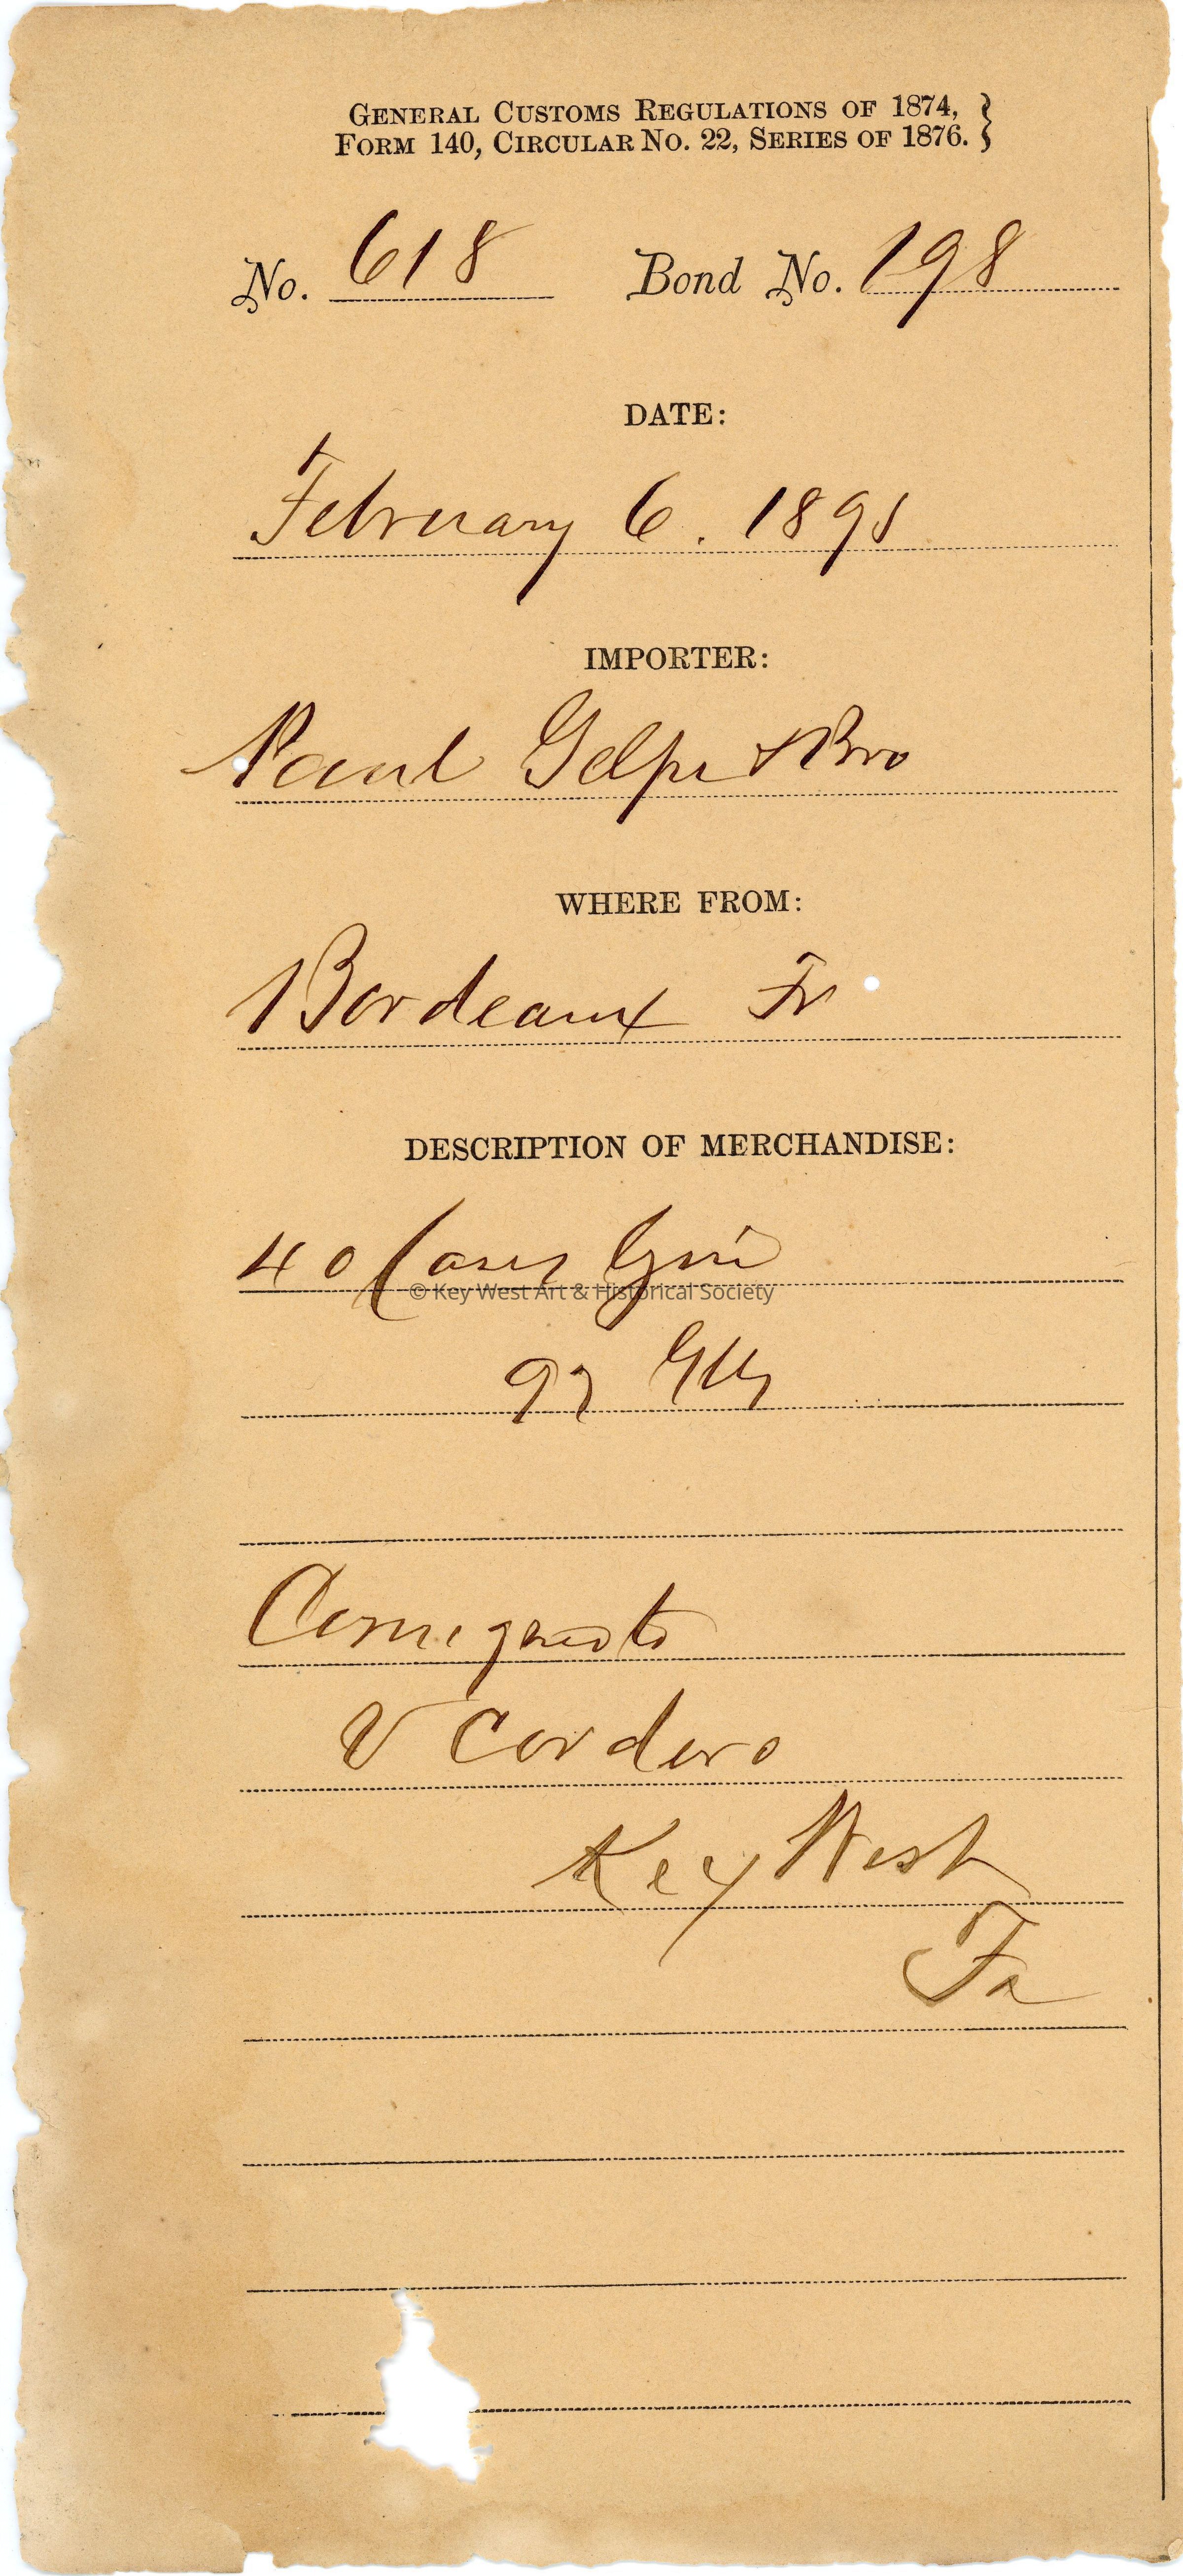 GENERAL CUSTOMS REGULATIONS OF 1874,
FORM 140, CIRCULAR No. 22, SERIES OF 1876.
No. 618 Bond No. 198
DATE:
February 6. 1891
IMPORTER:
Paul Gelpi & Bro
WHERE FROM:
Bordeaux Fr
DESCRIPTION OF MERCHANDISE:
40 Cases Gin
© Key West Art & Historical Society
97 Glls
Consigned to
V Cordero
Key West
Fa